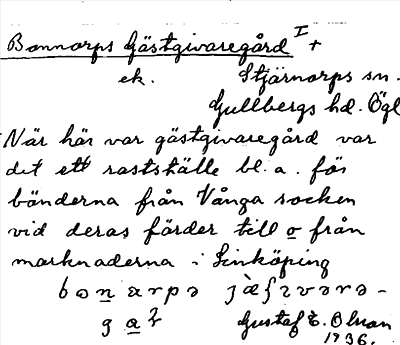 Bonnorps Gästgivaregård I +
ek. Stjärnorps sn.
Gullbergs hd. Ögl
När här var gästgivaregård var
det ett rastställe bl. a. för
bönderna från Vånga socken
vid deras färder till o från
marknaderna i Linköping
Gustaf E. Olson
1936.